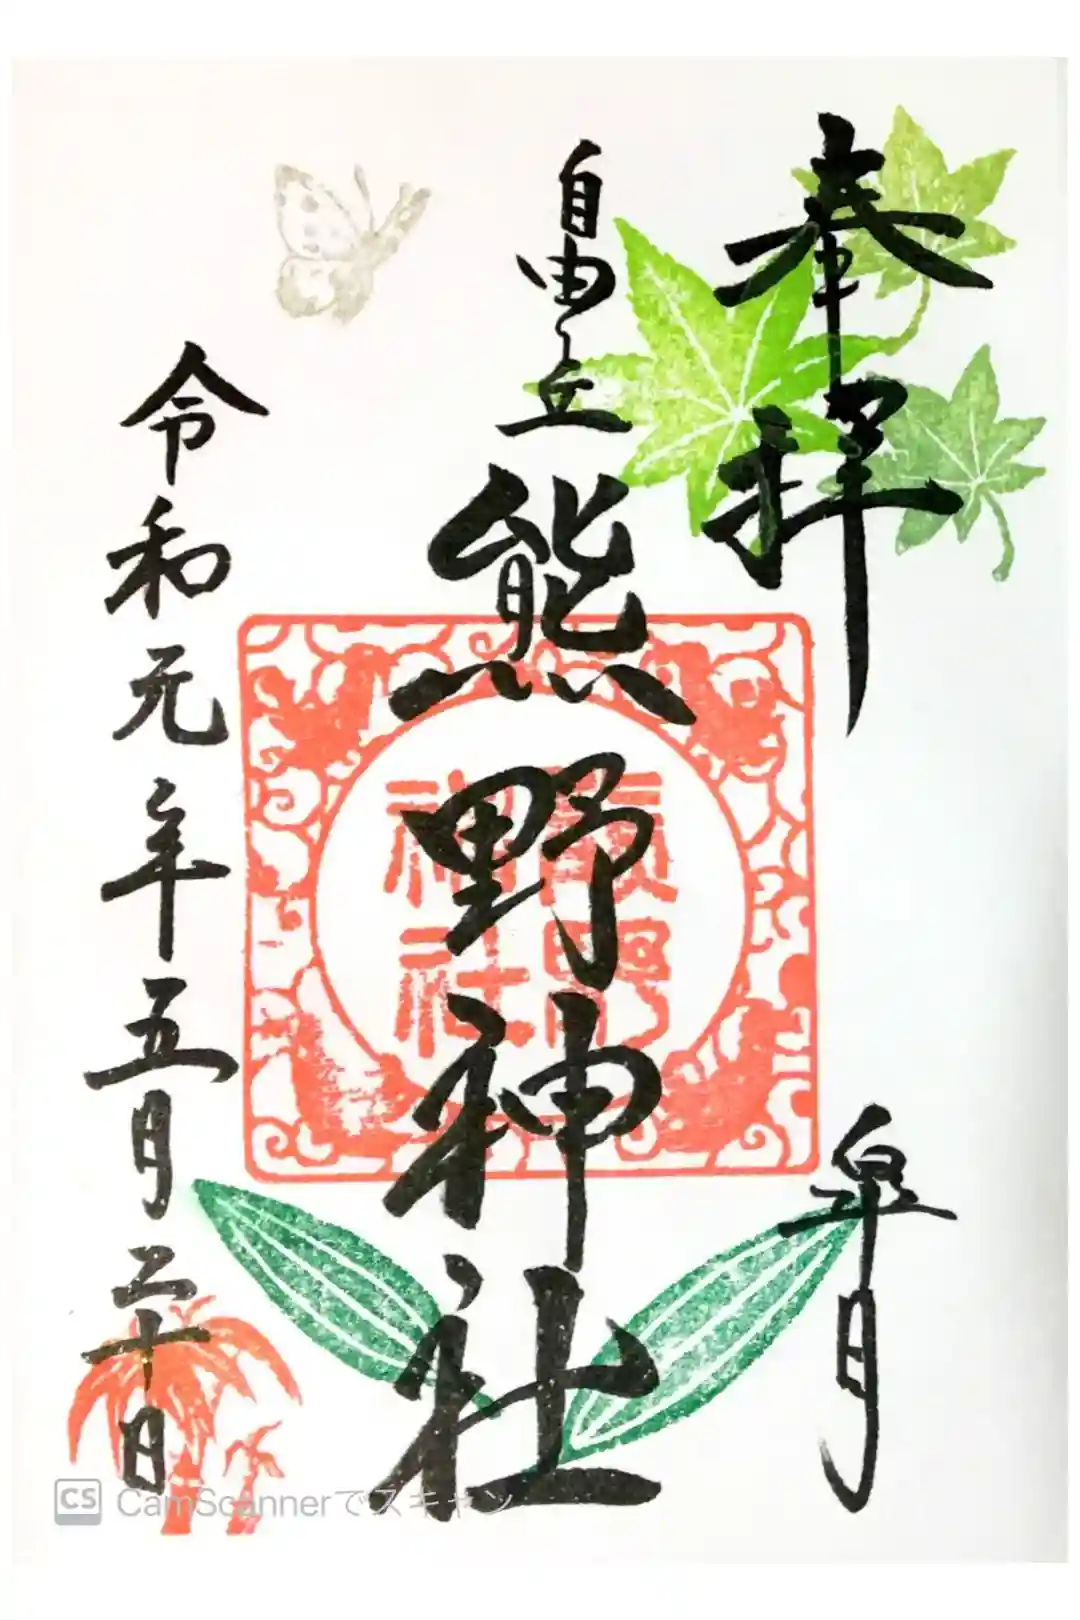 奉拝
皐月
自由丘
熊野神社
熊野
神社
令和元年五月二十日
CS CamScannerでスキャン